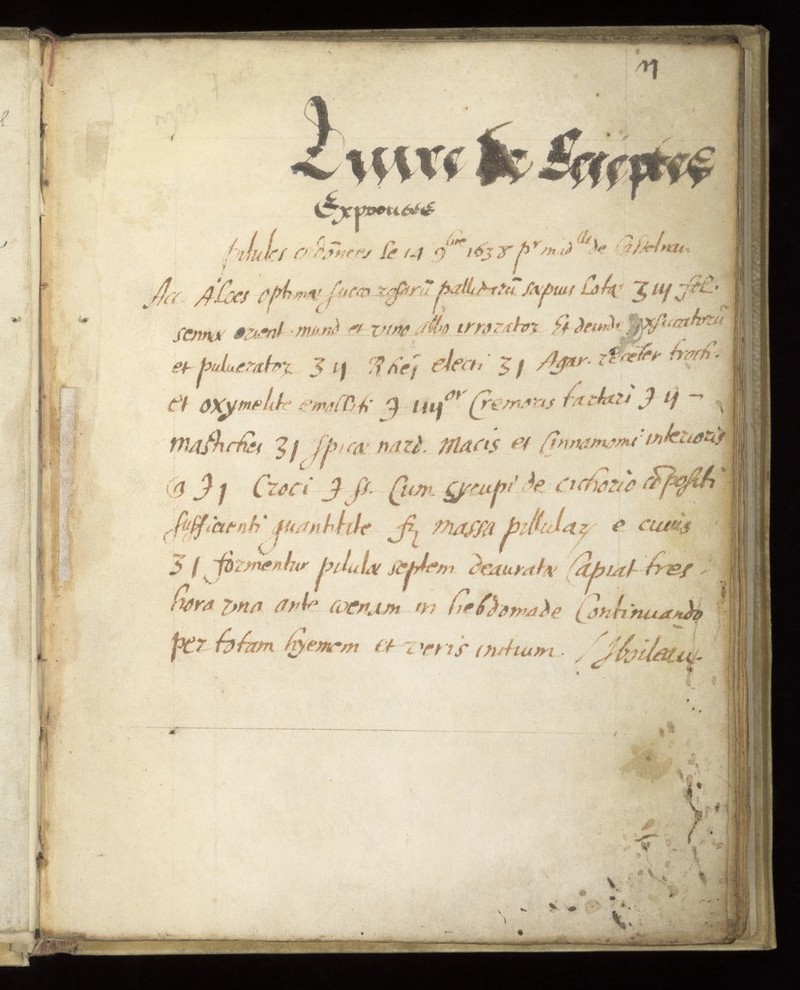 Liure de Receptes
Expvouuees
pilules ordōnees le 14 9bre 1638 pr madlle de Castelnau
Acc. Aloes optimæ succo rosarū pallidarū sæpius lotæ ʒ iij fol.
sennæ orient. mund et vino albo irrorator. Et deinde exsiccatorū
et puluerator ʒ ij Rhej electi ʒ j Agar. recēter troch.
et oxymelite emolliti ℈ iiijor Cremoris tartari ℈ ij –
mastiches ʒ j Spicæ nard. Macis et Cinnamomi interioris
@ ℈ j Croci ℈ ss. Cum syrupi de cichorio cōpositi
sufficienti quantitate fiat massa pillular e cuius
ʒ j formentur pilulæ septem deauratæ Capiat tres
hora vna ante coenam in hebdomade Continuando
per totam hyemem et veris initium. Boileau.